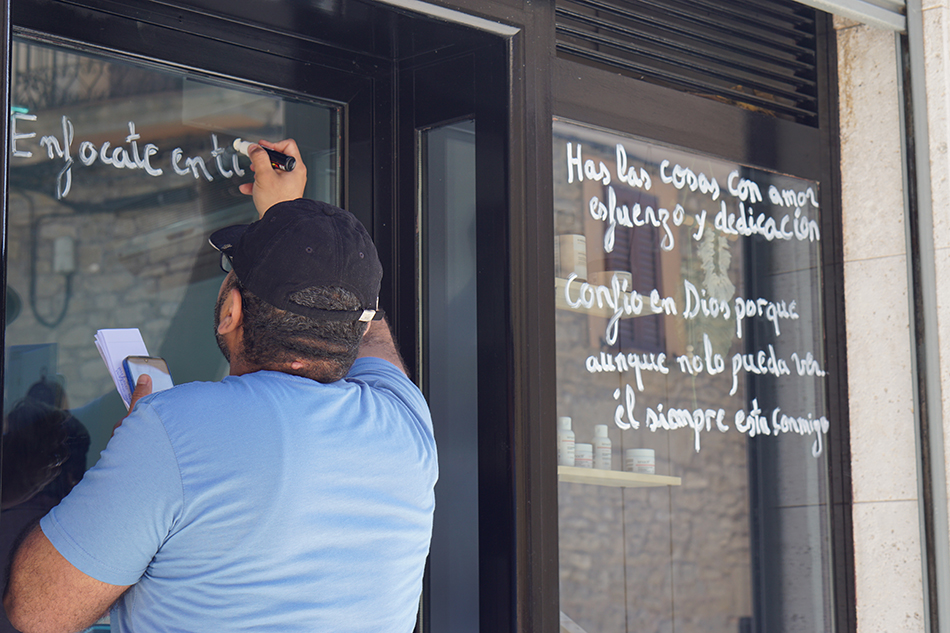 Enfocate en ti
Has las cosas con amor
esfuerzo y dedicación
Confío en Dios porque
aunque no lo pueda ver
él siempre esta conmigo